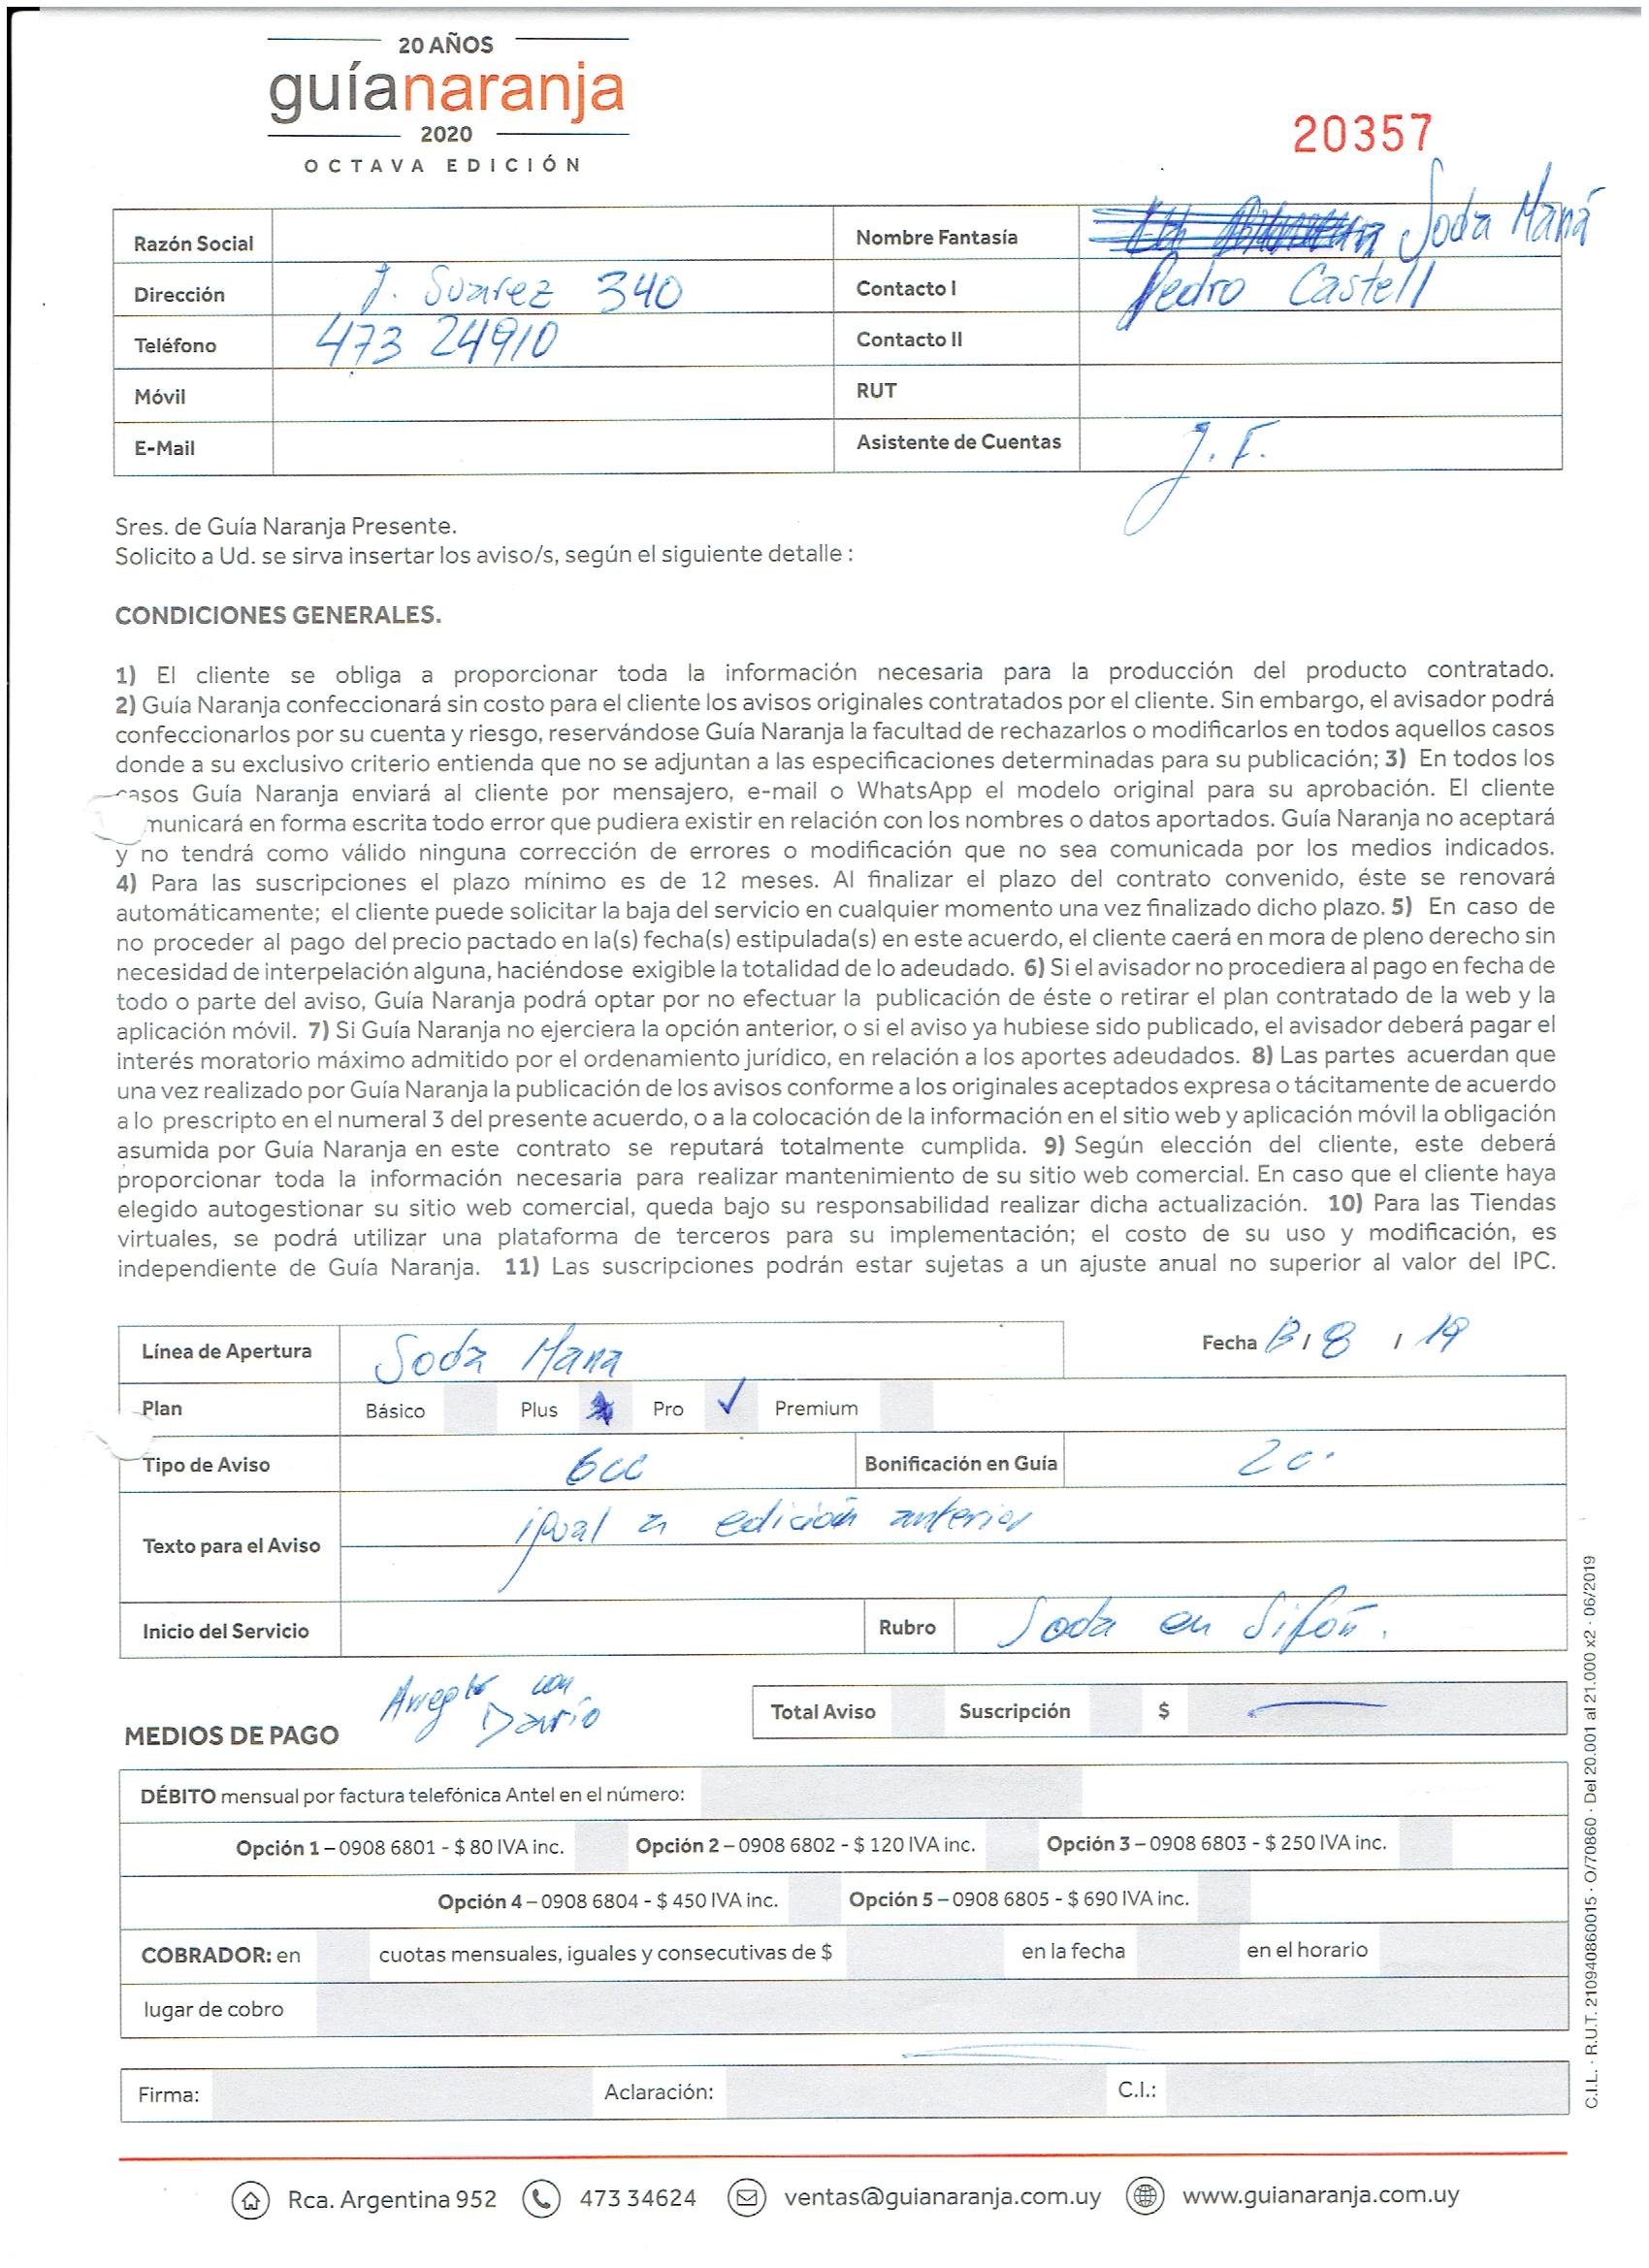 20 AÑOS
guíanaranja
2020
OCTAVA EDICIÓN
20357
Razón Social
Nombre Fantasía Soda Maná
Dirección J. Suarez 340
Contacto I Pedro Castell
Teléfono 473 24910
Contacto II
Móvil
RUT
E-Mail
Asistente de Cuentas J. F.
Sres. de Guía Naranja Presente.
Solicito a Ud. se sirva insertar los aviso/s, según el siguiente detalle :
CONDICIONES GENERALES.
1) El cliente se obliga a proporcionar toda la información necesaria para la producción del producto contratado.
2) Guía Naranja confeccionará sin costo para el cliente los avisos originales contratados por el cliente. Sin embargo, el avisador podrá
confeccionarlos por su cuenta y riesgo, reservándose Guía Naranja la facultad de rechazarlos o modificarlos en todos aquellos casos
donde a su exclusivo criterio entienda que no se adjuntan a las especificaciones determinadas para su publicación; 3) En todos los
casos Guía Naranja enviará al cliente por mensajero, e-mail o WhatsApp el modelo original para su aprobación. El cliente
municará en forma escrita todo error que pudiera existir en relación con los nombres o datos aportados. Guía Naranja no aceptará
y no tendrá como válido ninguna corrección de errores o modificación que no sea comunicada por los medios indicados.
4) Para las suscripciones el plazo mínimo es de 12 meses. Al finalizar el plazo del contrato convenido, éste se renovará
automáticamente; el cliente puede solicitar la baja del servicio en cualquier momento una vez finalizado dicho plazo. 5) En caso de
no proceder al pago del precio pactado en la(s) fecha(s) estipulada(s) en este acuerdo, el cliente caerá en mora de pleno derecho sin
necesidad de interpelación alguna, haciéndose exigible la totalidad de lo adeudado. 6) Si el avisador no procediera al pago en fecha de
todo o parte del aviso, Guía Naranja podrá optar por no efectuar la publicación de éste o retirar el plan contratado de la web y la
aplicación móvil. 7) Si Guía Naranja no ejerciera la opción anterior, o si el aviso ya hubiese sido publicado, el avisador deberá pagar el
interés moratorio máximo admitido por el ordenamiento jurídico, en relación a los aportes adeudados. 8) Las partes acuerdan que
una vez realizado por Guía Naranja la publicación de los avisos conforme a los originales aceptados expresa o tácitamente de acuerdo
a lo prescripto en el numeral 3 del presente acuerdo, o a la colocación de la información en el sitio web y aplicación móvil la obligación
asumida por Guía Naranja en este contrato se reputará totalmente cumplida. 9) Según elección del cliente, este deberá
proporcionar toda la información necesaria para realizar mantenimiento de su sitio web comercial. En caso que el cliente haya
elegido autogestionar su sitio web comercial, queda bajo su responsabilidad realizar dicha actualización. 10) Para las Tiendas
virtuales, se podrá utilizar una plataforma de terceros para su implementación; el costo de su uso y modificación, es
independiente de Guía Naranja. 11) Las suscripciones podrán estar sujetas a un ajuste anual no superior al valor del IPC.
Línea de Apertura Soda Mana
Fecha 13 / 8 / 19
Plan Básico Plus Pro ✓ Premium
Tipo de Aviso 6cc Bonificación en Guía 2c.
Texto para el Aviso igual a edición anterior
Inicio del Servicio Rubro Soda en Sifón.
Arreglo con
Darío
MEDIOS DE PAGO
Total Aviso Suscripción $
DÉBITO mensual por factura telefónica Antel en el número:
Opción 1 – 0908 6801 - $ 80 IVA inc. Opción 2 – 0908 6802 - $ 120 IVA inc. Opción 3 – 0908 6803 - $ 250 IVA inc.
Opción 4 – 0908 6804 - $ 450 IVA inc. Opción 5 – 0908 6805 - $ 690 IVA inc.
COBRADOR: en cuotas mensuales, iguales y consecutivas de $ en la fecha en el horario
lugar de cobro
Firma: Aclaración: C.I.:
C.I.L. · R.U.T. 210940860015 · O/70860 · Del 20.001 al 21.000 x2 · 06/2019
Rca. Argentina 952 473 34624 ventas@guianaranja.com.uy www.guianaranja.com.uy